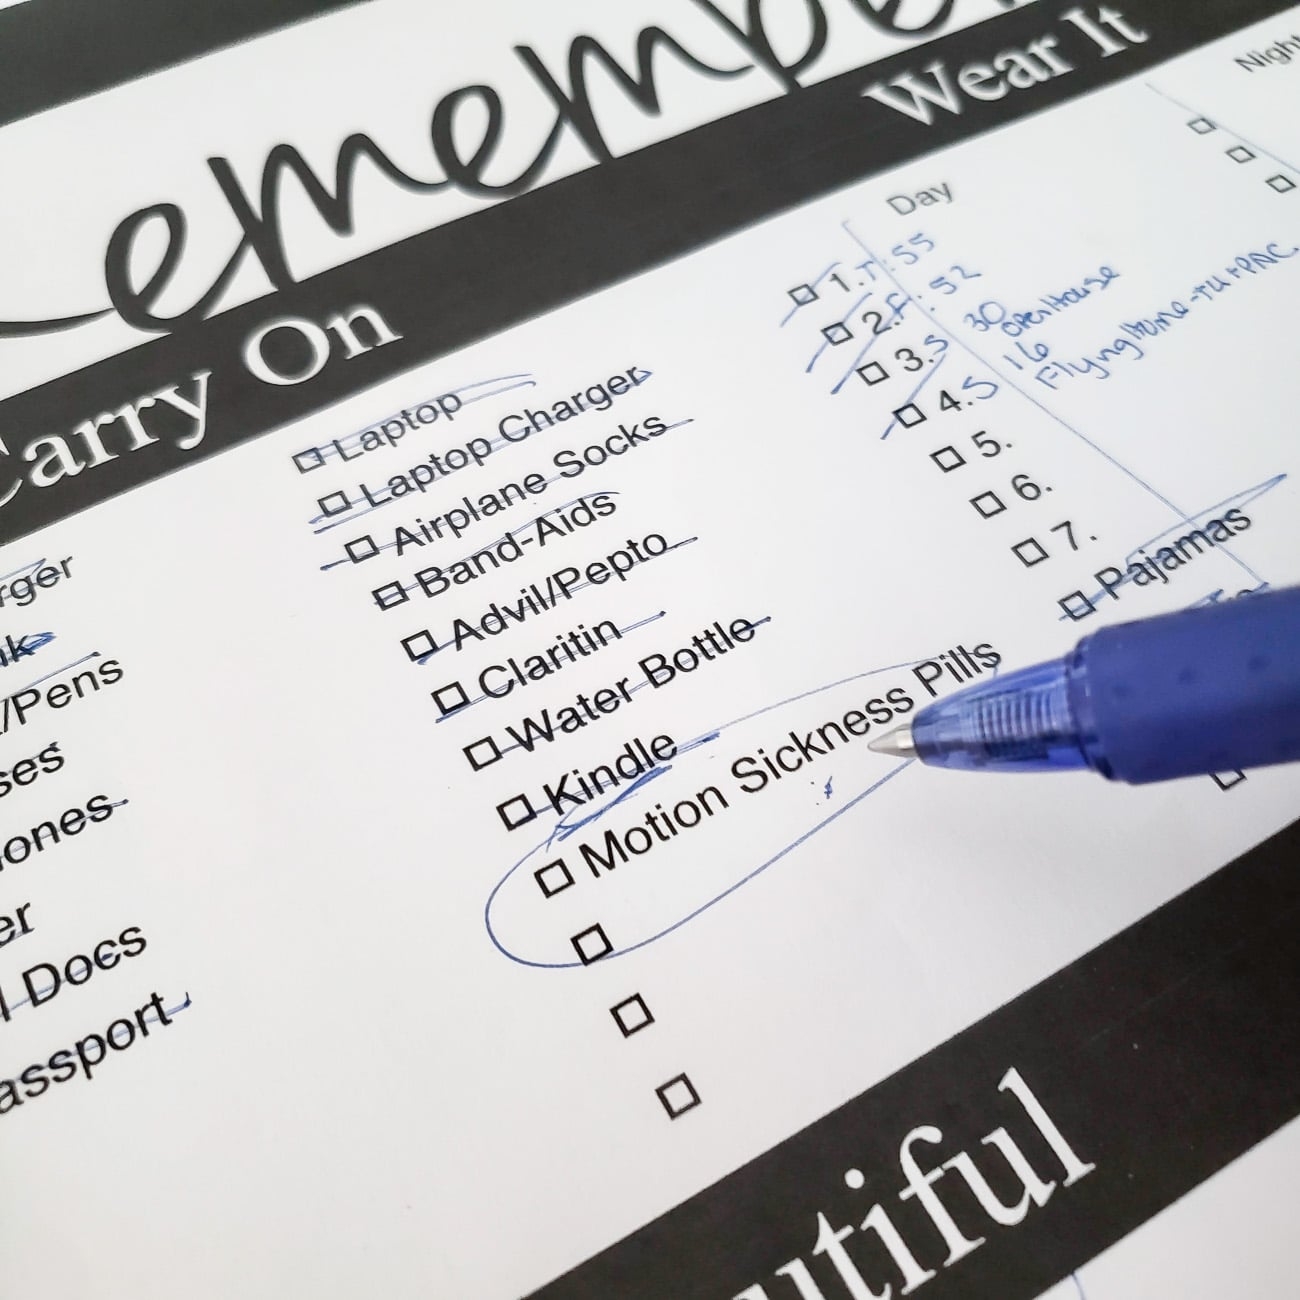 Wear It
Carry On
Day
Night
Laptop
Laptop Charger
Airplane Socks
Band-Aids
Advil/Pepto
Claritin
Water Bottle
Kindle
Motion Sickness Pills
/Pens
Docs
1. T: 55
2. F: 52
3. S 30
Open House
4. S 16
Flying Home-TU+PNC
5.
6.
7.
Pajamas